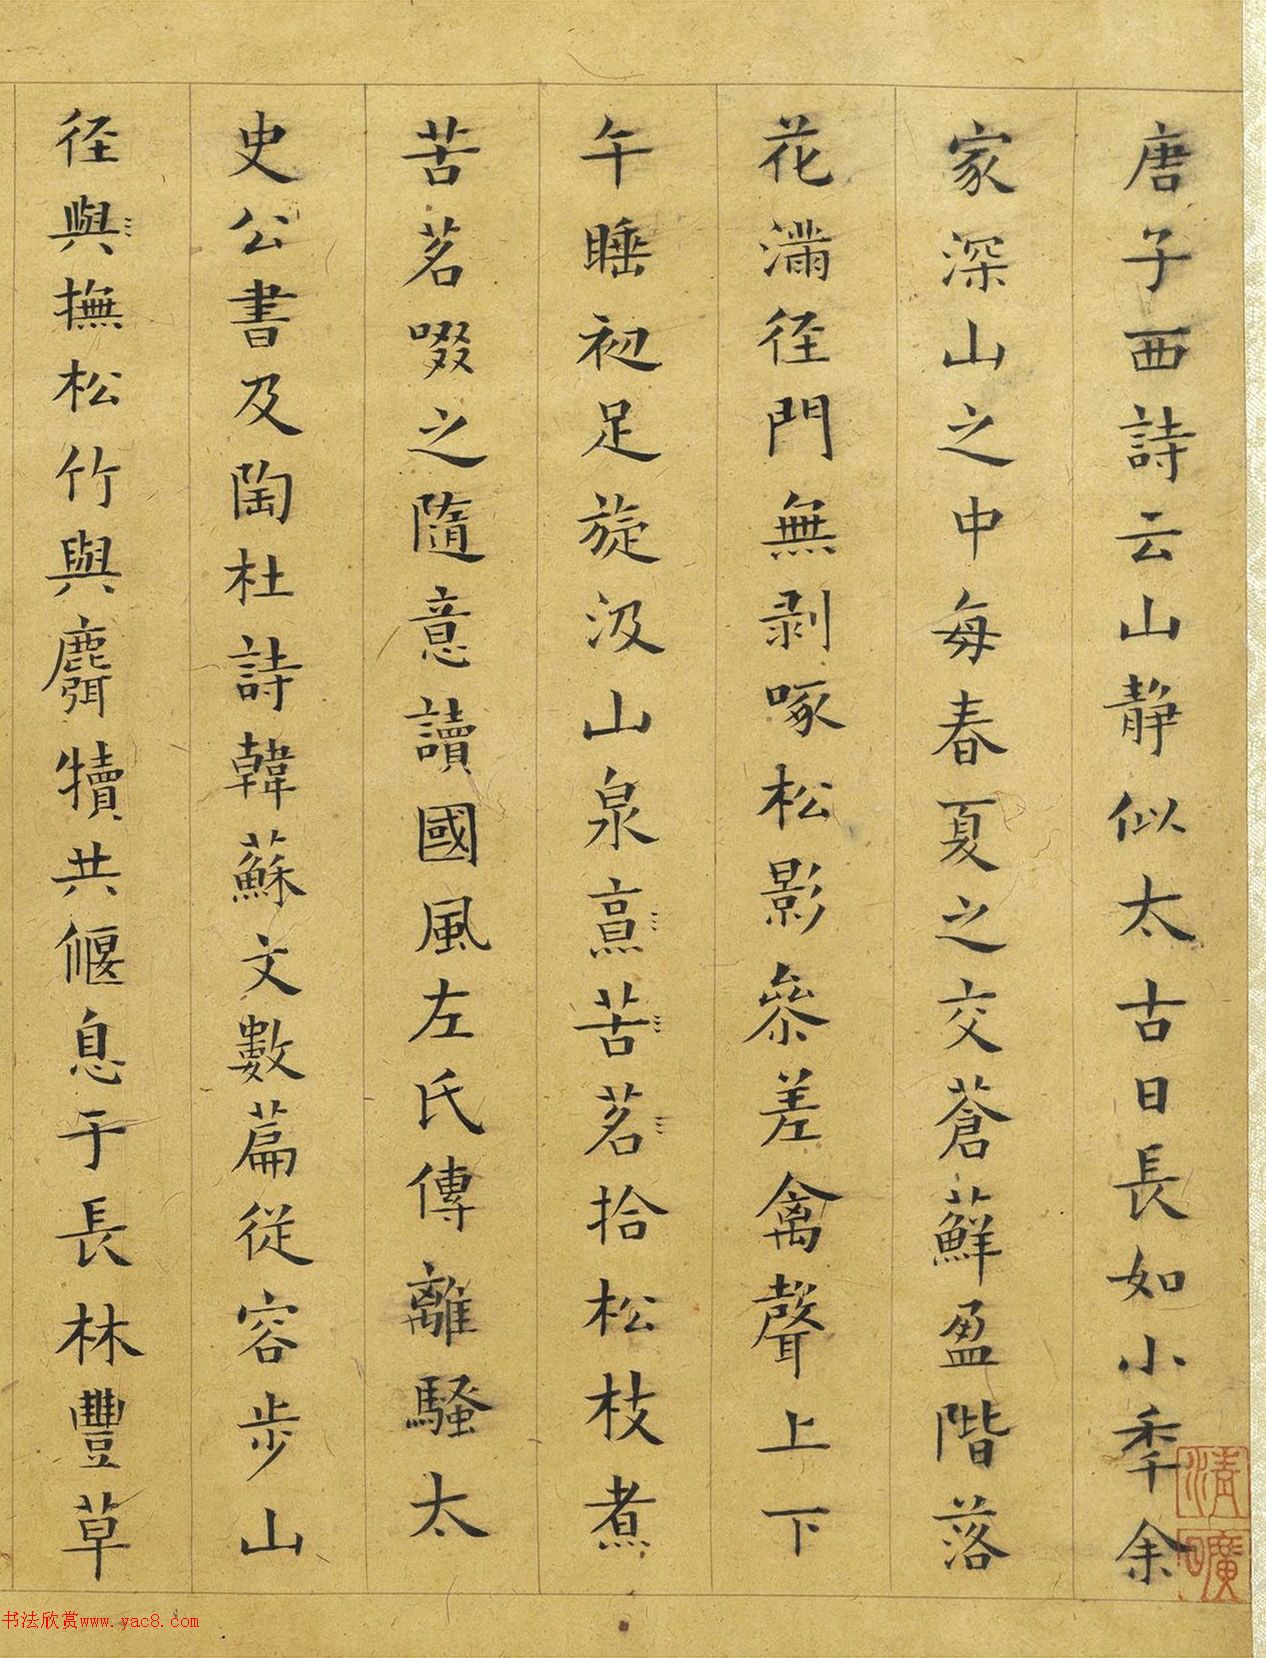 唐子西詩云山靜似太古日長如小秊余
家深山之中每春夏之交蒼蘚盈階落
花滿徑門無剥啄松影叅差禽聲上下
午睡初足旋汲山泉亯苦茗拾松枝煮
苦茗啜之隨意讀國風左氏傳離騷太
史公書及陶杜詩韓蘇文數篇從容步山
徑與撫松竹與麛犢共偃息于長林豐草
清曠
书法欣赏www.yac8.com